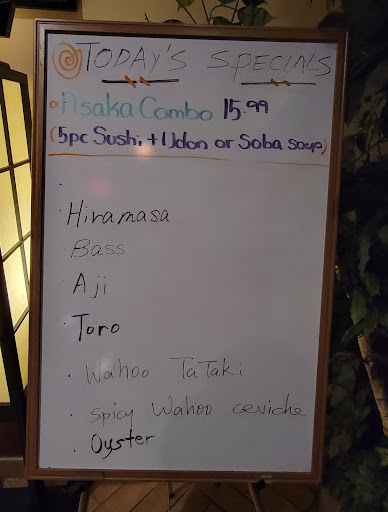 TODAY'S SPECIALS
Asaka Combo 15.99
(5pc Sushi + Udon or Soba soup)
Hiramasa
Bass
Aji
Toro
Wahoo TaTaki
Spicy Wahoo ceviche
Oyster